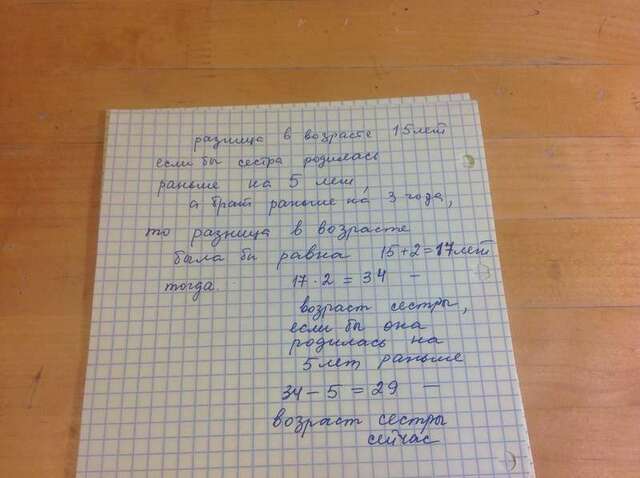 разница в возрасте 15 лет
если бы сестра родилась
раньше на 5 лет,
а брат раньше на 3 года,
то разница в возрасте
была бы равна 15+2=17 лет
тогда 17·2=34 —
возраст сестры,
если бы она
родилась на
5 лет раньше
34-5=29 —
возраст сестры
сейчас